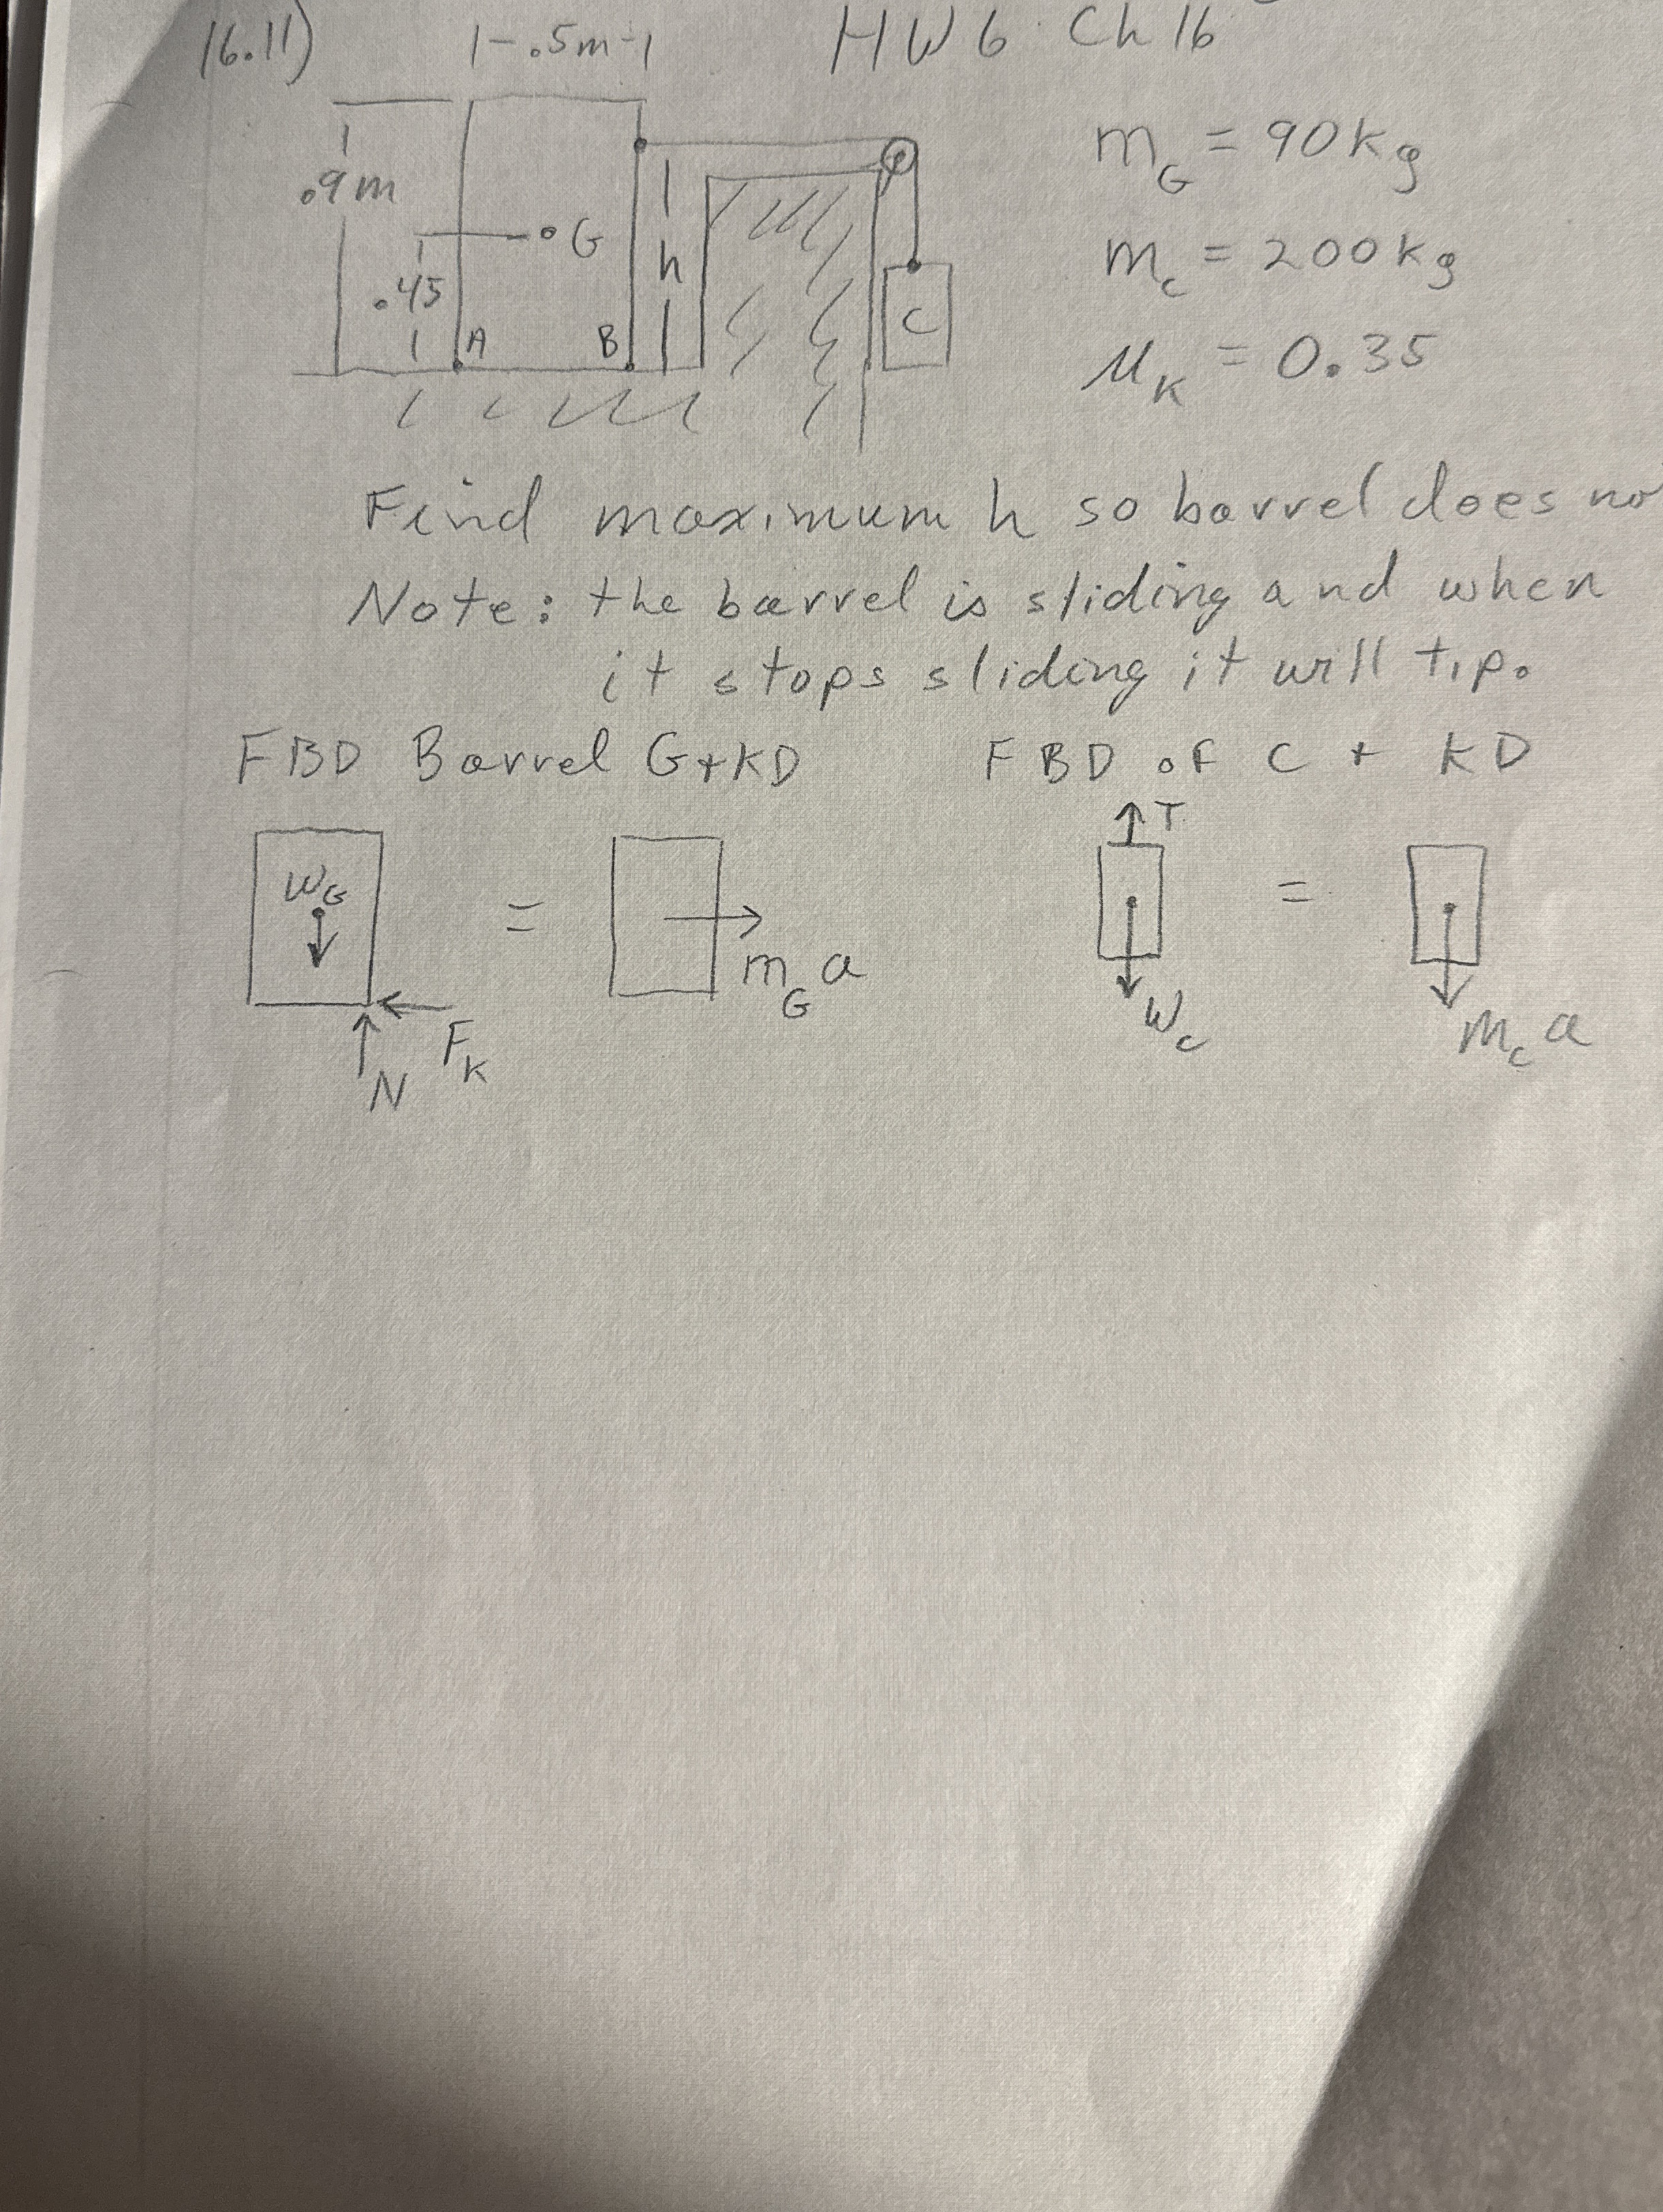 16.11) |-.5m-| HW6 Ch 16
.9m
G
.45
h
A B
C
m_G = 90kg
m_c = 200kg
μ_K = 0.35
Find maximum h so barrel does no
Note: the barrel is sliding and when
it stops sliding it will tip.
FBD Barrel G+KD FBD of C + KD
W_G = m_G a
F_K
N
T
W_c = m_c a